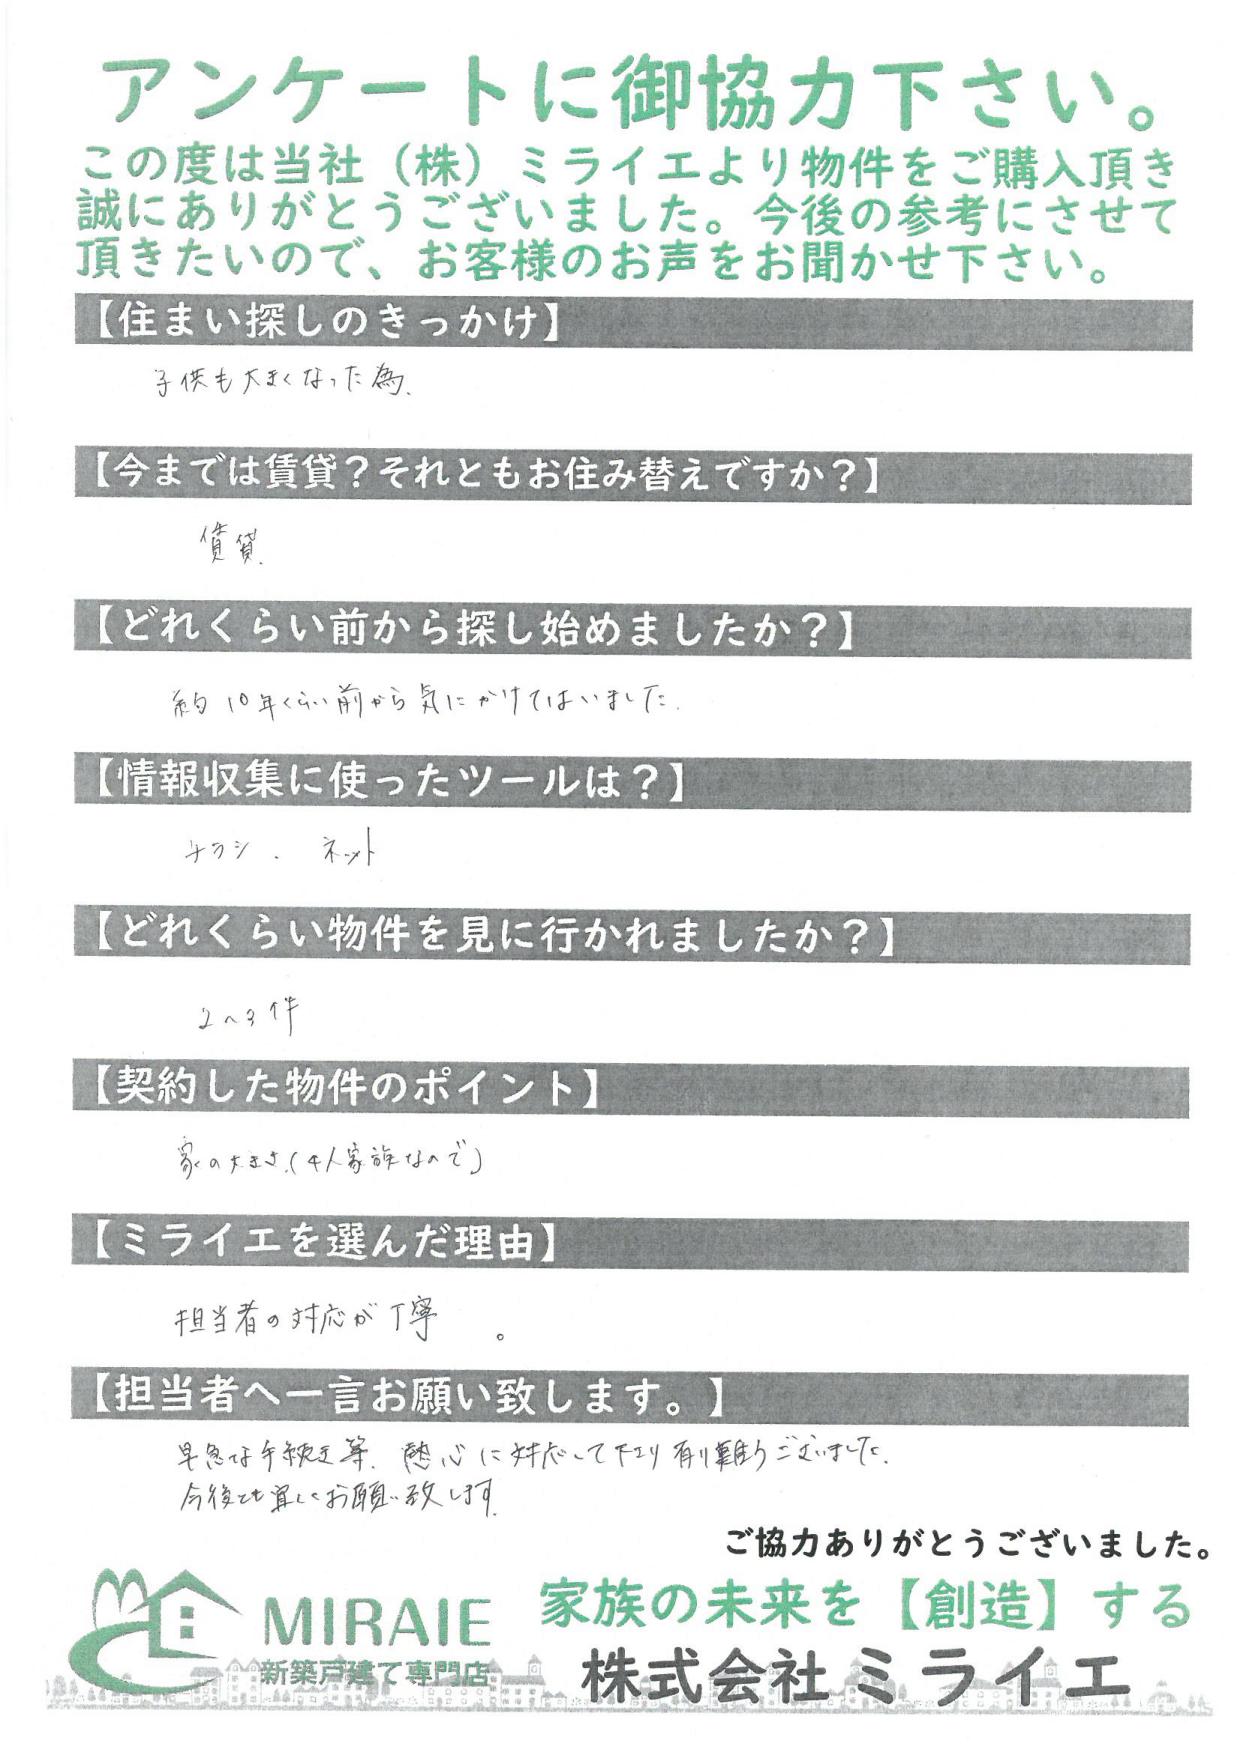 アンケートに御協力下さい。
この度は当社（株）ミライエより物件をご購入頂き
誠にありがとうございました。今後の参考にさせて
頂きたいので、お客様のお声をお聞かせ下さい。
【住まい探しのきっかけ】
子供も大きくなった為.
【今までは賃貸？それともお住み替えですか？】
賃貸.
【どれくらい前から探し始めましたか？】
約10年くらい前から気にかけてはいました.
【情報収集に使ったツールは？】
チラシ . ネット
【どれくらい物件を見に行かれましたか？】
2〜3件
【契約した物件のポイント】
家の大きさ.(4人家族なので)
【ミライエを選んだ理由】
担当者の対応が丁寧 。
【担当者へ一言お願い致します。】
早急な手続き等. 熱心に対応して下さり有り難うございました.
今後とも宜しくお願い致します.
ご協力ありがとうございました。
MIRAIE
新築戸建て専門店
家族の未来を【創造】する
株式会社ミライエ